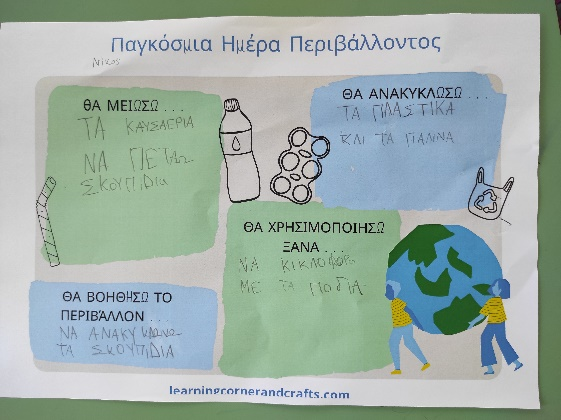 Παγκόσμια Ημέρα Περιβάλλοντος
Νίκος
ΘΑ ΜΕΙΩΣΩ . . .
ΤΑ ΚΑΥΣΑΕΡΙΑ
ΝΑ ΠΕΤΑΩ
ΣΚΟΥΠΙΔΙΑ
ΘΑ ΑΝΑΚΥΚΛΩΣΩ . . .
ΤΑ ΠΛΑΣΤΙΚΑ
ΚΑΙ ΤΑ ΓΙΑΛΙΝΑ
ΘΑ ΧΡΗΣΙΜΟΠΟΙΗΣΩ
ΞΑΝΑ . . .
ΝΑ ΚΙΚΛΟΦΟΡΩ
ΜΕ ΤΑ ΠΟΔΙΑ
ΘΑ ΒΟΗΘΗΣΩ ΤΟ
ΠΕΡΙΒΆΛΛΟΝ . . .
ΝΑ ΑΝΑΚΥΚΛΩΝΩ
ΤΑ ΣΚΟΥΠΙΔΙΑ
learningcornerandcrafts.com